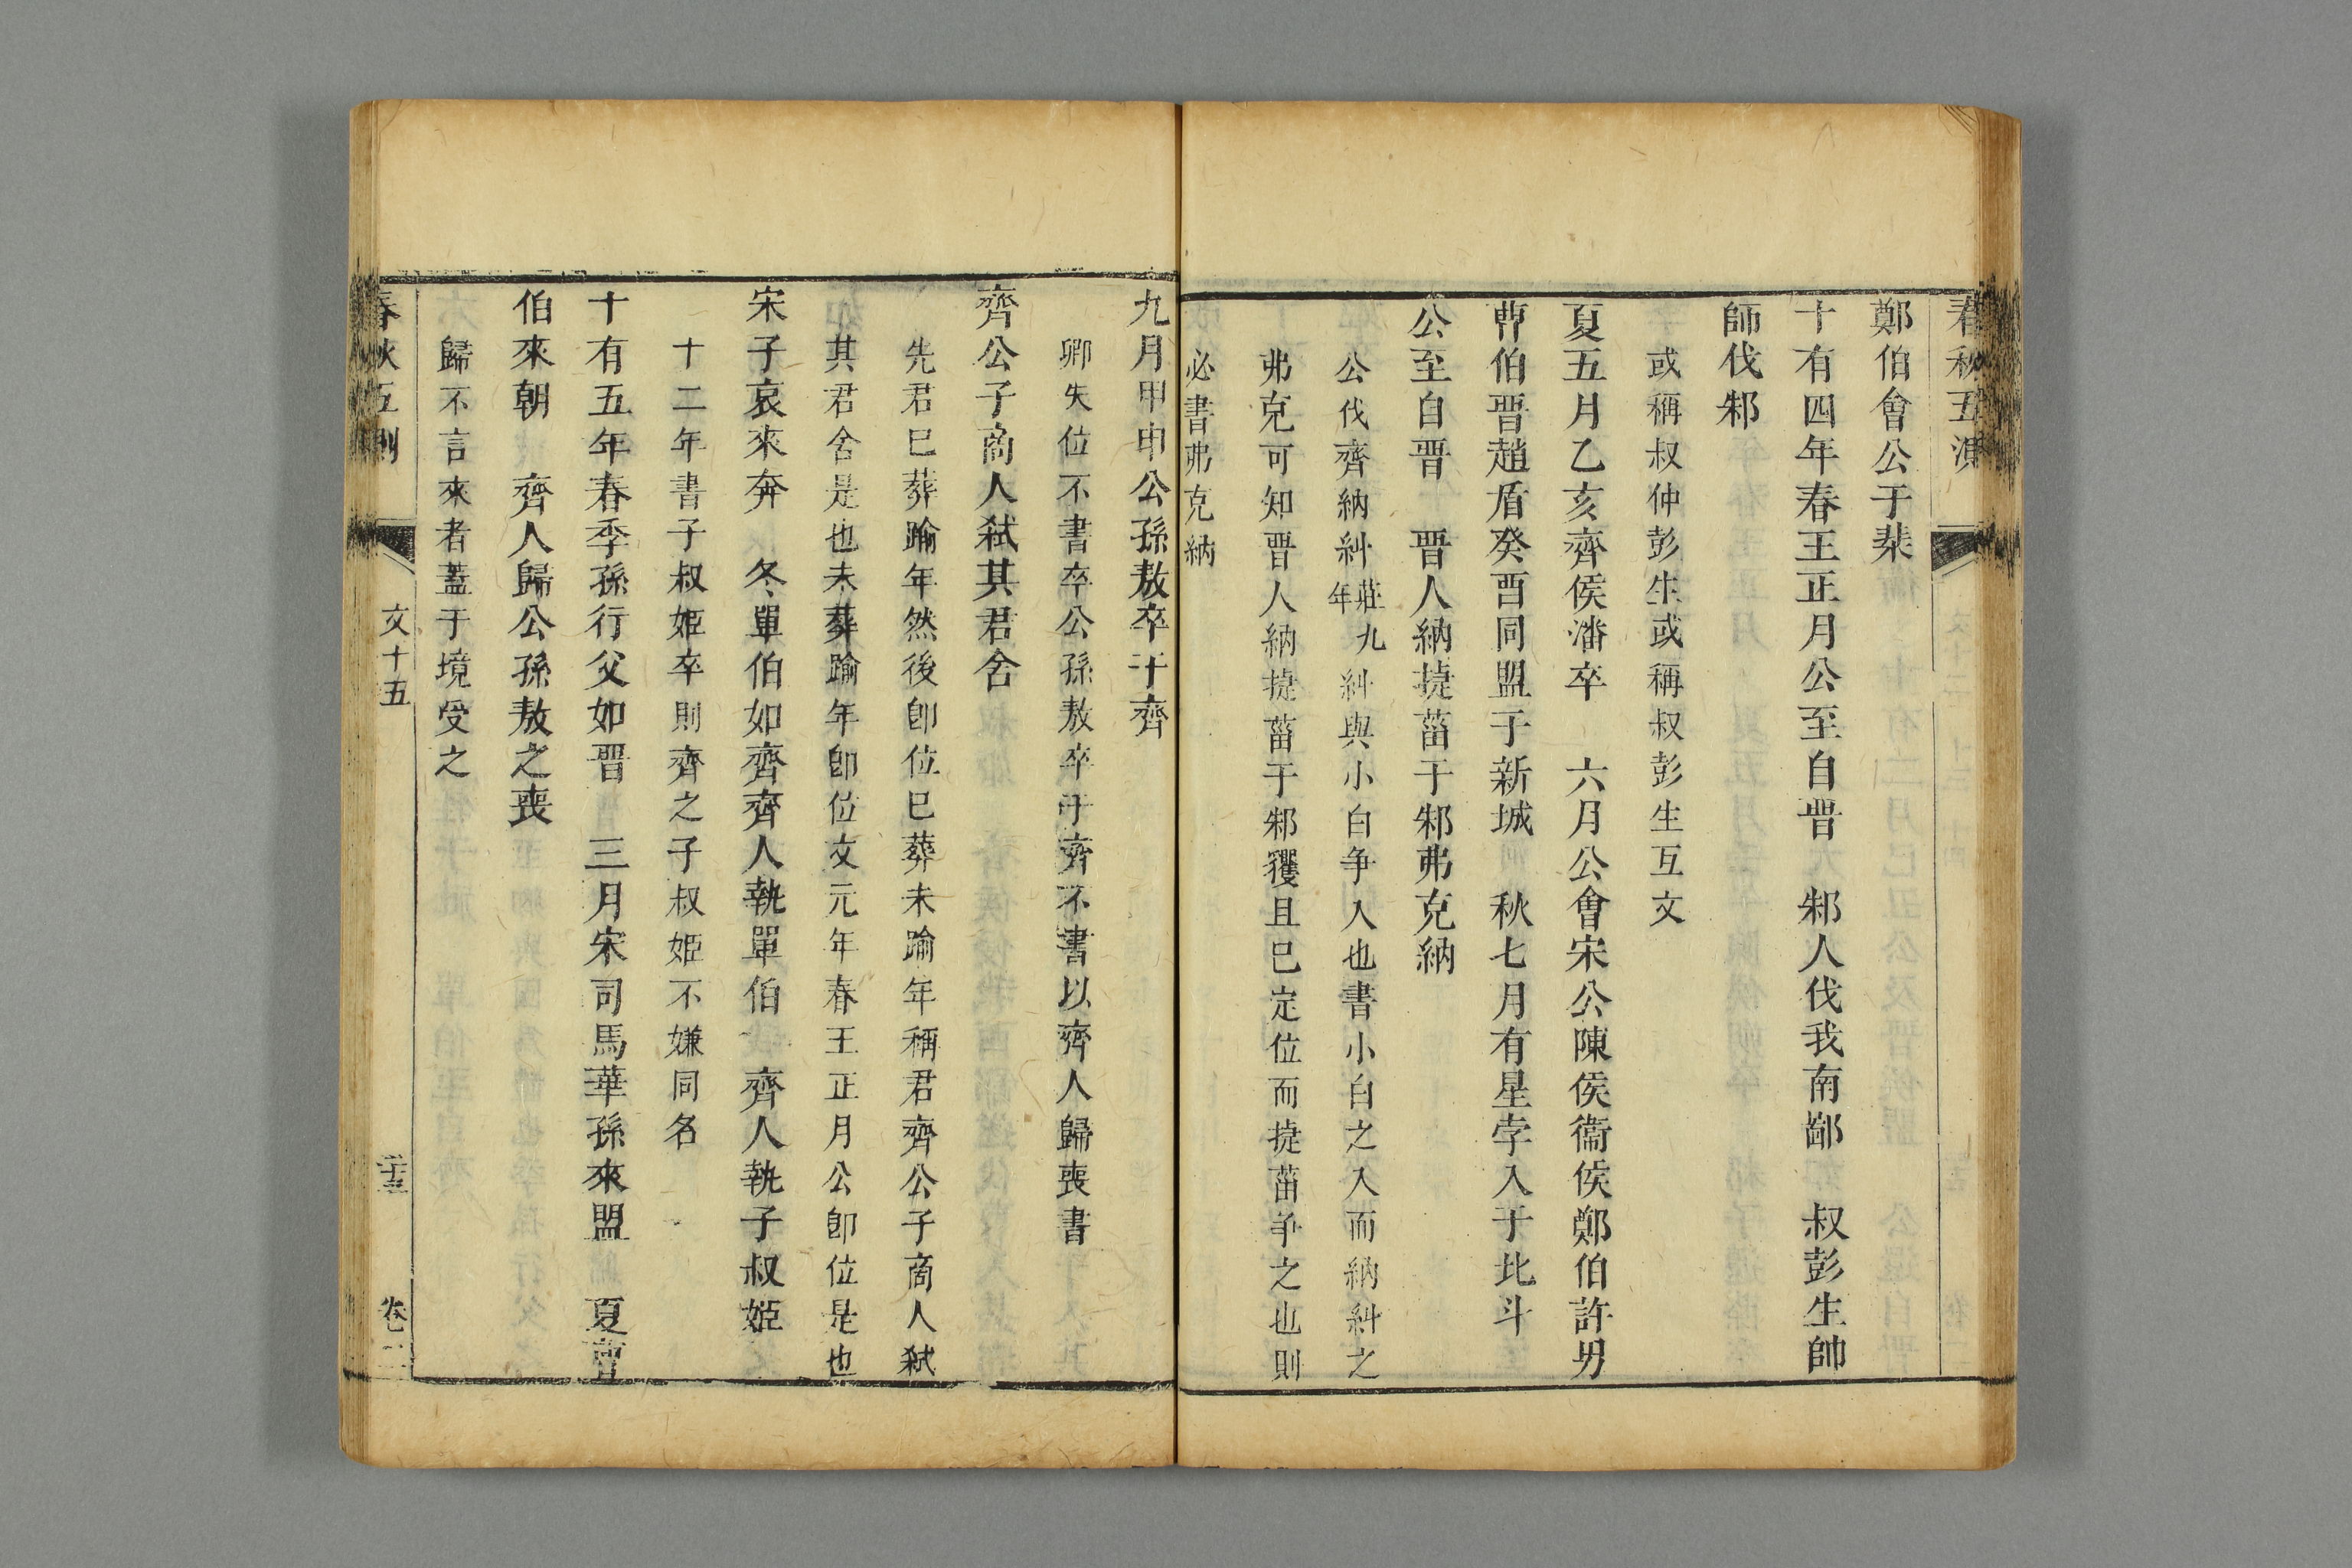 春秋五測
鄭伯會公于棐
十有四年春王正月公至自晋　邾人伐我南鄙　叔彭生帥
師伐邾
或稱叔仲彭生或稱叔彭生互文
夏五月乙亥齊侯潘卒　六月公會宋公陳侯衞侯鄭伯許男
曹伯晋趙盾癸酉同盟于新城　秋七月有星孛入于北斗
公至自晋　晋人納捷菑于邾弗克納
公伐齊納糾莊九年糾與小白争入也書小白之入而納糾之
弗克可知晋人納捷菑于邾玃且巳定位而捷菑争之也則
必書弗克納
九月甲申公孫敖卒于齊
卿失位不書卒公孫敖卒于齊不書以齊人歸喪書
齊公子商人弑其君舍
先君巳葬踰年然後卽位巳葬未踰年稱君齊公子商人弑
其君舍是也未葬踰年卽位文元年春王正月公卽位是也
宋子哀來奔　冬單伯如齊齊人執單伯　齊人執子叔姬
十二年書子叔姬卒則齊之子叔姬不嫌同名
十有五年春季孫行父如晋　三月宋司馬華孫來盟　夏曹
伯來朝　齊人歸公孫敖之喪
歸不言來者蓋于境受之
春秋五測　文十五　卷二